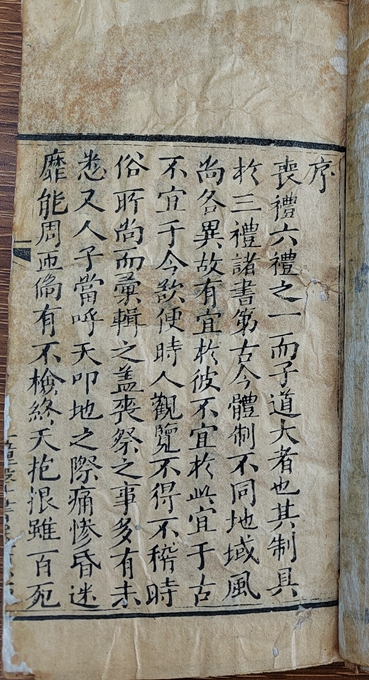 序
喪禮六禮之一而子道大者也其制具
於三禮諸書第古今體制不同地域風
尚各異故有宜於彼不宜於此宜于古
不宜于今欲便時人觀覽不得不稽時
俗所尚而彙輯之盖喪祭之事多有未
悉又人子當呼天叩地之際痛慘昏迷
靡能周匝偹有不檢終天抱恨雖百死